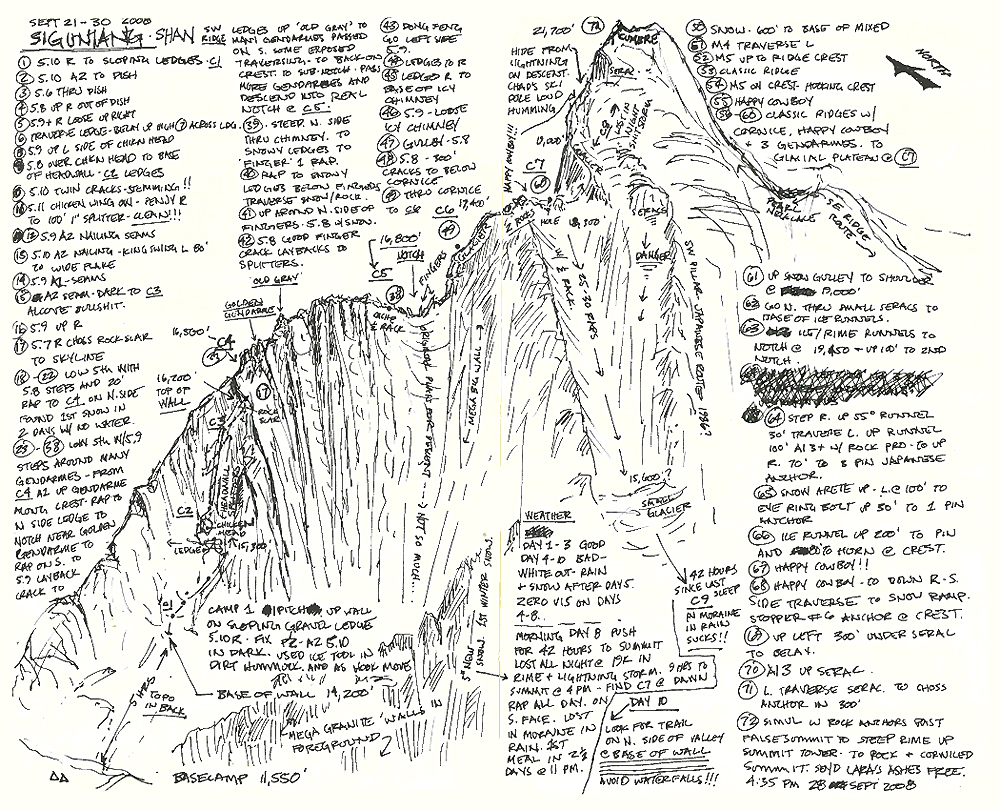 SEPT 21-30 2008
SIGUNIANG-SHAN SW RIDGE
① 5.10 R TO SLOPING LEDGES-C1
② 5.10 A2 TO DISH
③ 5.6 THRU DISH
④ 5.8 UP R OUT OF DISH
⑤ 5.9+R LOOSE UP RIGHT
⑥ TRAVERSE LEDGE-BELAY UP HIGH ⑦ ACROSS LDG.
⑧ 5.9 UP L SIDE OF CHIKN HEAD
5.8 OVER CHKN HEAD TO BASE
OF HEADWALL-C2 LEDGES
5.10 TWIN CRACKS-STEMMING!!
5.11 CHICKEN WING OW-PENNY R
TO 100' 1" SPLITTER-CLEAN!!!
5.9 A2 NAILING SEAMS
⑬ 5.10 A2 NAILING-KING SWING L 80'
TO WIDE FLAKE
⑭ 5.9 A2-SEAMS
⑮ A2 SEAM-DARK TO C3
ALCOVE BULLSHIT.
⑯ 5.9 UP R
⑰ 5.7 R CHOSS ROCK SCAR
TO SKYLINE
⑱-㉒ LOW 5TH WITH
5.8 STEPS AND 20'
RAP TO C4 ON N.SIDE
FOUND 1ST SNOW IN
2 DAYS W/ NO WATER.
㉓-㊳ LOW 5TH W/5.9
STEPS AROUND MANY
GENDARMES-FROM
C4 A2 UP GENDARME
ALONG CREST-RAP TO
N SIDE LEDGE TO
NOTCH NEAR GOLDEN
GENDARME TO
RAP ON S. TO
5.9 LAYBACK
CRACK TO
LEDGES UP 'OLD GRAY' TO
MANY GENDARMES PASSED
ON S. SOME EXPOSED
TRAVERSING-TO BACK ON
CREST. TO SUB-NOTCH-PASS
MORE GENDARMES AND
DESCEND INTO REAL
NOTCH @ C5
㊴ STEEP N. SIDE
THRU CHIMNEY. TO
SNOWY LEDGES TO
'FINGER' 1 RAP.
㊵ RAP TO SNOWY
LEDGES BELOW FINGERS
TRAVERSE SNOW/ROCK.
㊶ UP AROUND N. SIDE OF
FINGERS-5.8 W/SNOW.
㊷ 5.8 GOOD FINGER
CRACK LAYBACKS TO
SPLITTERS.
㊸ DONG FENG
GO LEFT SIDE
5.9.
㊹ LEDGES TO R
㊺ LEDGES TO R TO
BASE OF ICY
CHIMNEY
㊻ 5.9-LOOSE
ICY CHIMNEY
㊼ GULLEY-5.8
㊽ 5.8-300'
CRACKS TO BELOW
CORNICE
㊾ THRU CORNICE
TO C6
21,700'
㉒
CUMBRE
SERAC
HIDE FROM
LIGHTNING
ON DESCENT.
CHAD'S SKI
POLE LOUD
HUMMING.
HAPPY COWBOY!!!
C8
LOST IN
NIGHT
C7
17,400'
C6
GLACIER
HOLE
SERACS
DANGER
25-30 RAPS
½ RACK
PEARL
NECKLACE
SE RIDGE
ROUTE
NORTH
㊿ SNOW-600' TO BASE OF MIXED
51 M4 TRAVERSE L
52 M5 UP TO RIDGE CREST
53 CLASSIC RIDGE
54 M5 ON CREST-HOOKING CREST
55 HAPPY COWBOY
56-60 CLASSIC RIDGES W/
CORNICE, HAPPY COWBOY
+ 3 GENDARMES. TO
GLACIAL PLATEAU @ C7
61 UP SNOW GULLEY TO SHOULDER
@ 19,000'
62 GO N. THRU SMALL SERACS TO
BASE OF ICE RUNNELS.
63 ICE/RIME RUNNELS TO
NOTCH @ 19,450 + UP 100' TO 2ND
NOTCH.
64 STEP R. UP 55° RUNNEL
30' TRAVERSE L. UP RUNNEL
100' AI3+ W/ ROCK PRO-TO UP
R. 70' TO 3 PIN JAPANESE
ANCHOR.
65 SNOW ARETE UP-L.@ 100' TO
EYE RING BOLT UP 50' TO 1 PIN
ANCHOR
66 ICE RUNNEL UP 200' TO PIN
AND HORN @ CREST.
67 HAPPY COWBOY!!
68 HAPPY COWBOY-TO DOWN R-S.
SIDE TRAVERSE TO SNOW RAMP.
STOPPER #6 ANCHOR @ CREST.
69 UP LEFT 300' UNDER SERAC
TO BELAY.
70 AI3 UP SERAC.
71 L. TRAVERSE SERAC. TO CHOSS
ANCHOR IN 300'
72 SIMUL W ROCK ANCHORS PAST
FALSE SUMMIT TO STEEP RIME UP
SUMMIT TOWER. TO ROCK + CORNICED
SUMMIT. SEYD LARA'S ASHES FREE.
4:35 PM 28 SEPT 2008
OLD GRAY
GOLDEN
GENDARME
16,500'
C4
16,200'
TOP OF
WALL
16,800'
NOTCH
C5
FINGERS
⑰
ROCK
SCAR
C3
HEADWALL
C2
CHICKEN
HEAD
LEDGES
15,300'
ORIGINAL PLAN FOR DESCENT ----> NOT SO MUCH...
MEGA BIG WALL
SW PILLAR-JAPANESE ROUTE 1986?
15,600'
SMALL
GLACIER
CAMP 1 PITCH UP WALL
ON SLOPING GRAVEL LEDGE
5.10R-FIX P2-A2 5.10
IN DARK. USED ICE TOOL IN
DIRT HUMMOCK. AND AS HOOK MOVE
BASE OF WALL 14,200'
5 HRS
TOPO
IN BACK
MEGA GRANITE WALLS IN
FOREGROUND
BASECAMP 11,550'
WEATHER
DAY 1-3 GOOD
DAY 4-10 BAD-
WHITE OUT-RAIN
+ SNOW AFTER DAY 5.
ZERO VIS ON DAYS
4-8..
MORNING DAY 8 PUSH
FOR 42 HOURS TO SUMMIT
LOST ALL NIGHT @ 19K IN
RIME + LIGHTNING STORM. 9 HRS TO
SUMMIT @ 4 PM-FIND C7 @ DAWN
RAP ALL DAY. ON
S. FACE. LOST
IN MORAINE IN
RAIN. 1ST
MEAL IN 2½
DAYS @ 11 PM.
42 HOURS
SINCE LAST
SLEEP
C9
IN MORAINE
IN RAIN
SUCKS!!
DAY 10
LOOK FOR TRAIL
ON N. SIDE OF VALLEY
@ BASE OF WALL
AVOID WATERFALLS!!!